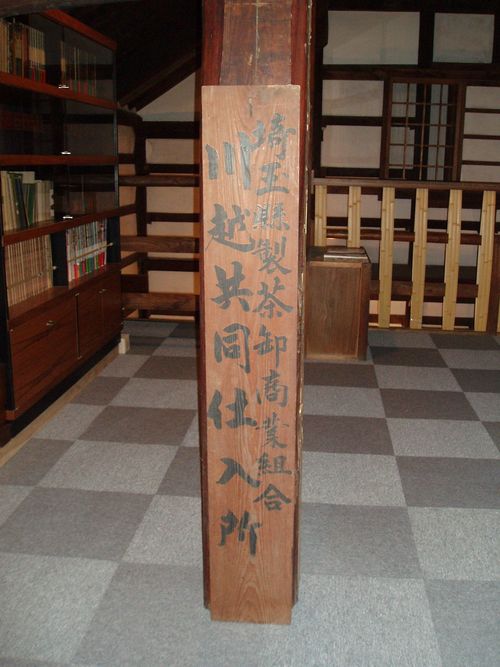 埼玉縣製茶卸商業組合
川越共同仕入所